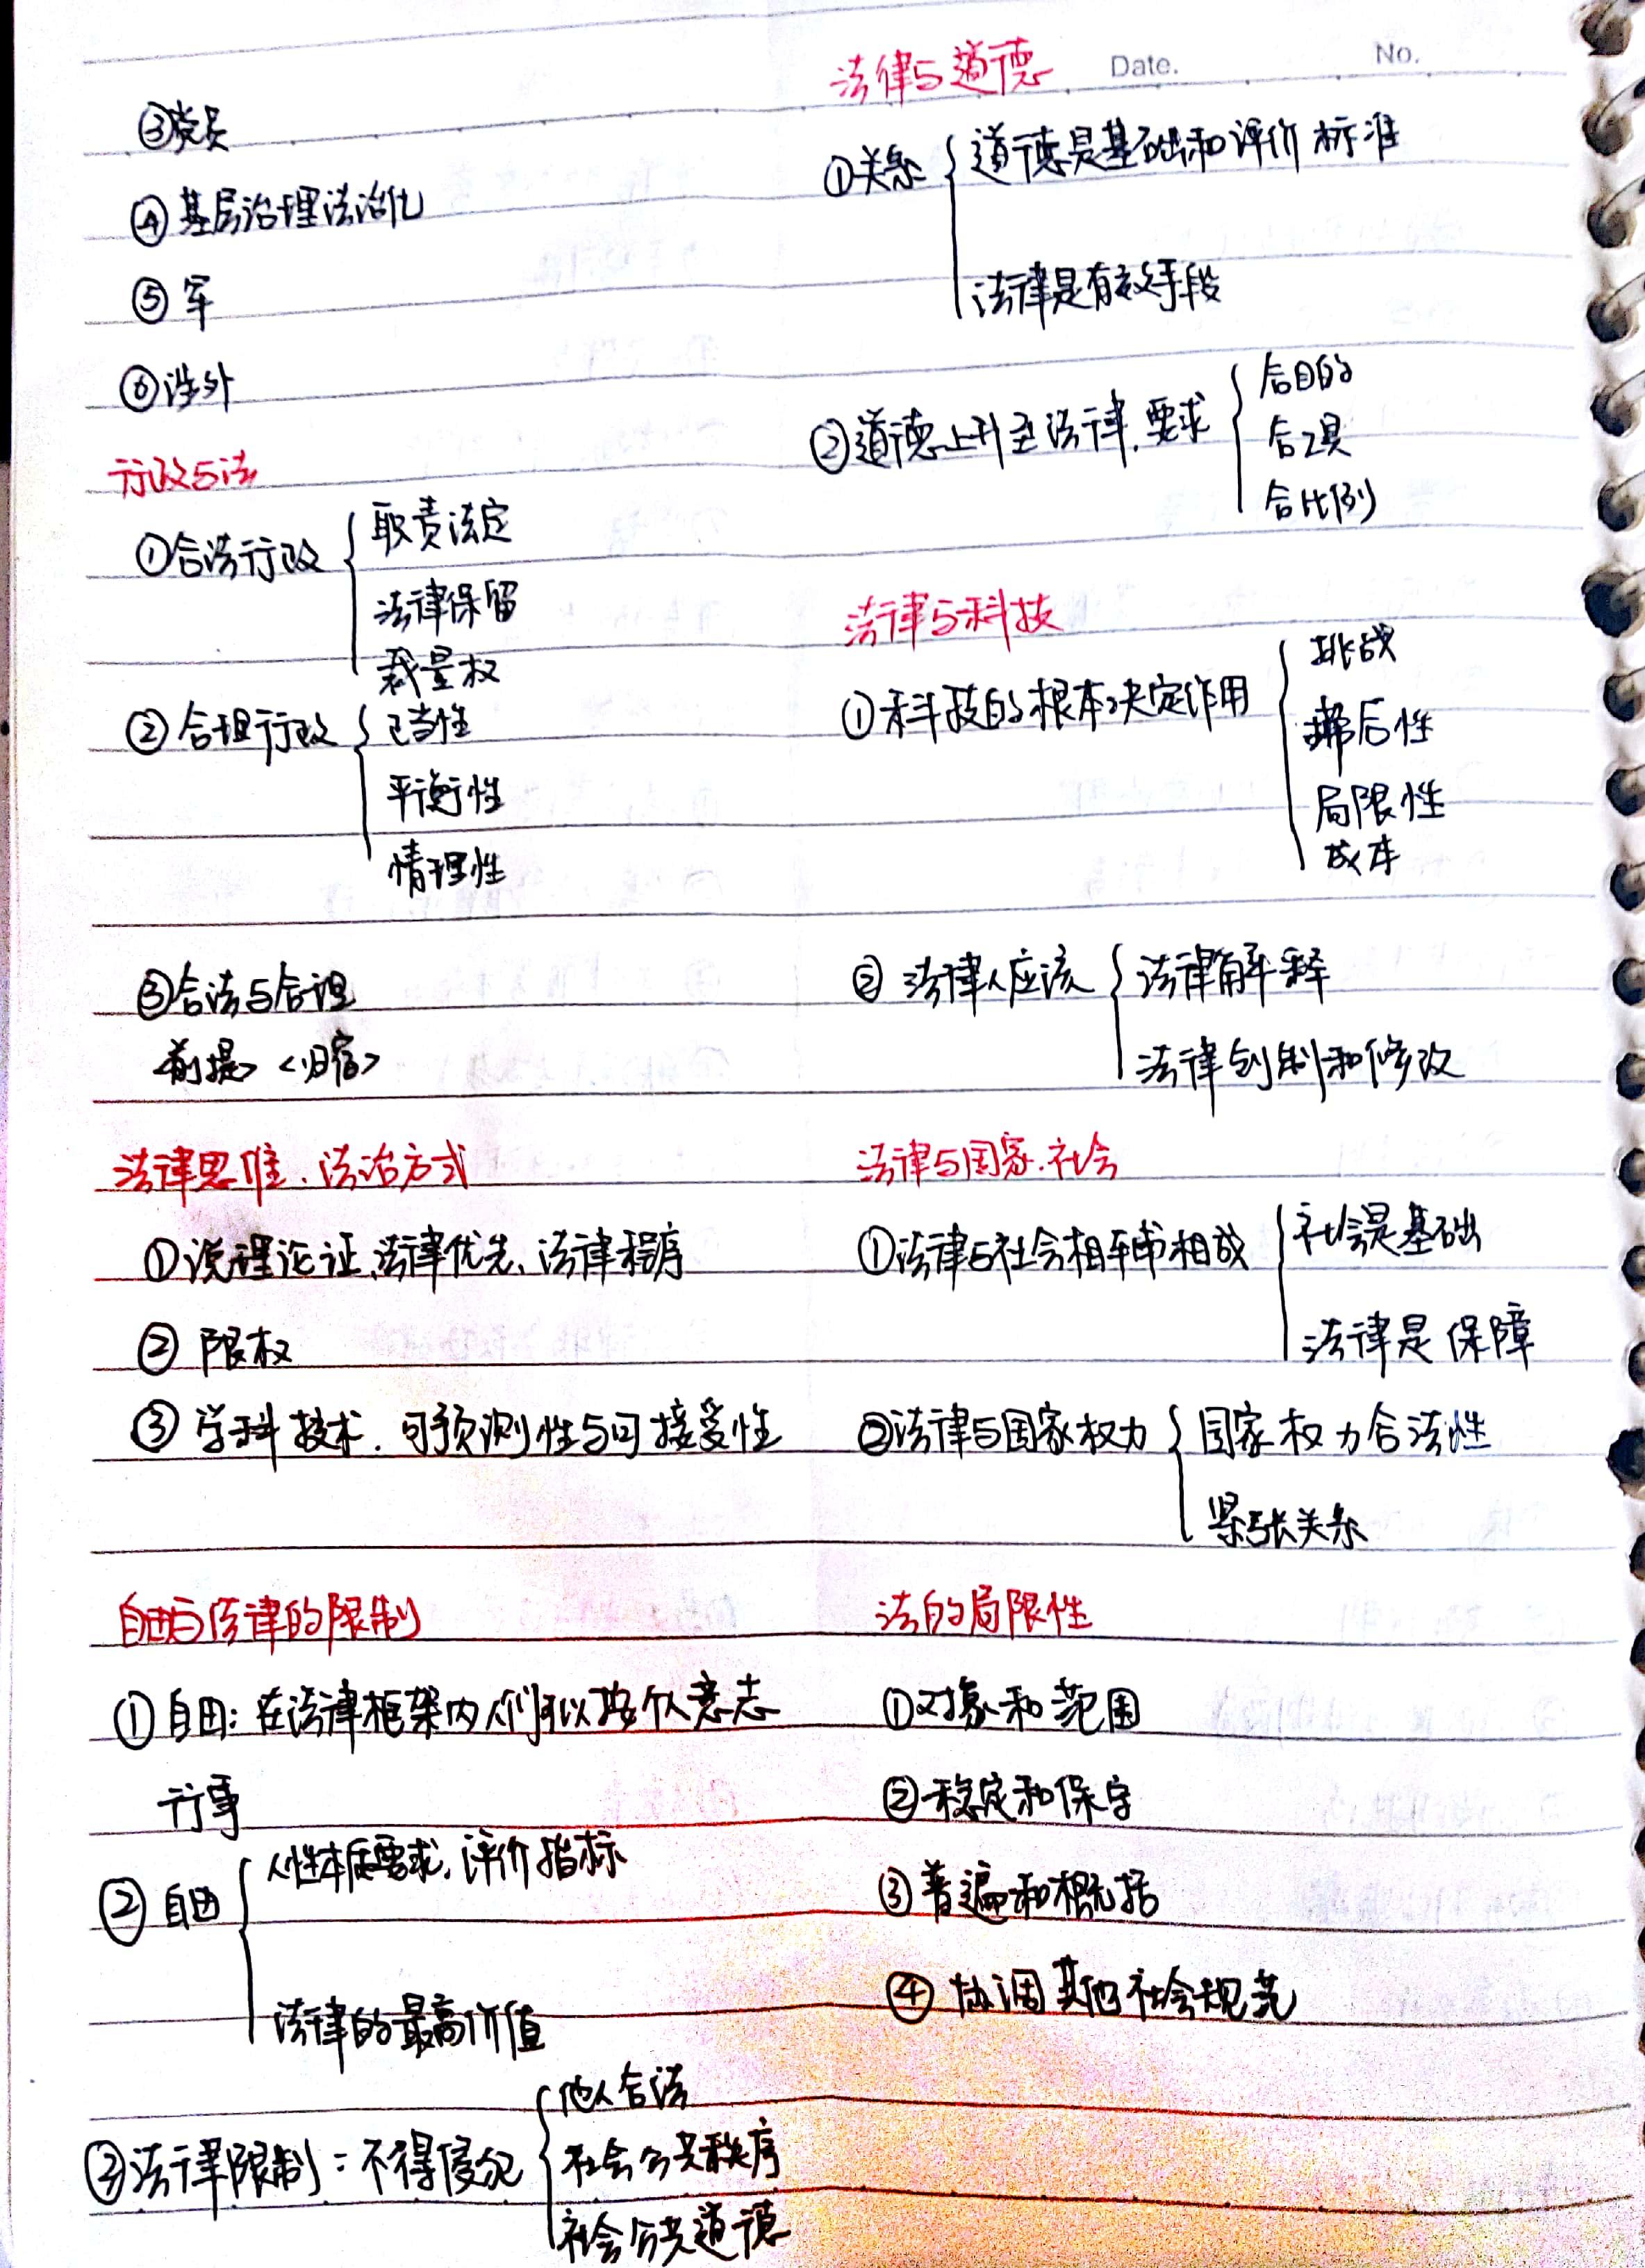 ③党员
④基层治理法治化
⑤军
⑥涉外
行政与法
①合法行政
职责法定
法律保留
裁量权
②合理行政
正当性
平衡性
情理性
③合法与合理
<前提> <归宿>
法律思维、法治方式
①说理论证、法律优先、法律程序
②限权
③学科技术、可预测性与可接受性
自由与法律的限制
①自由：在法律框架内人们可以按个人意志
行事
②自由
人性本质要求，评价指标
法律的最高价值
③法律限制：不得侵犯
他人合法
社会公共秩序
社会公共道德
Date. No.
法律与道德
①关系
道德是基础和评价标准
法律是有效手段
②道德上升至法律，要求
合目的
合工具
合比例
法律与科技
①科技的根本决定作用
挑战
滞后性
局限性
成本
②法律人应该
法律解释
法律创制和修改
法律与国家、社会
①法律与社会相辅相成
社会是基础
法律是保障
②法律与国家权力
国家权力合法性
紧张关系
法的局限性
①对象和范围
②稳定和保守
③普遍和概括
④协调其他社会规范